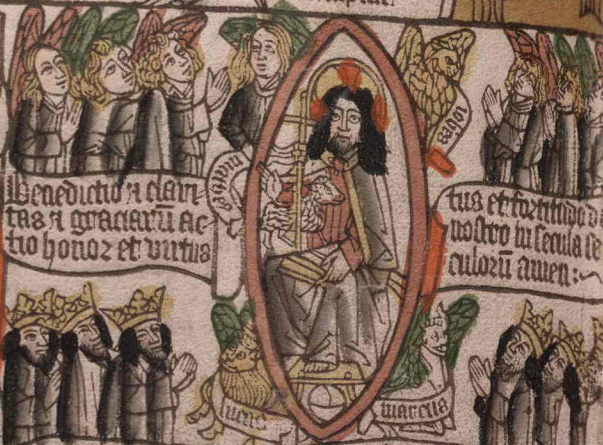 Benedictio ⁊ clari
tas ⁊ graciarū ac
tio honor et virtus
tus et fortitudo d
nostro in secula se
culorū amen:~
lucas
marcus